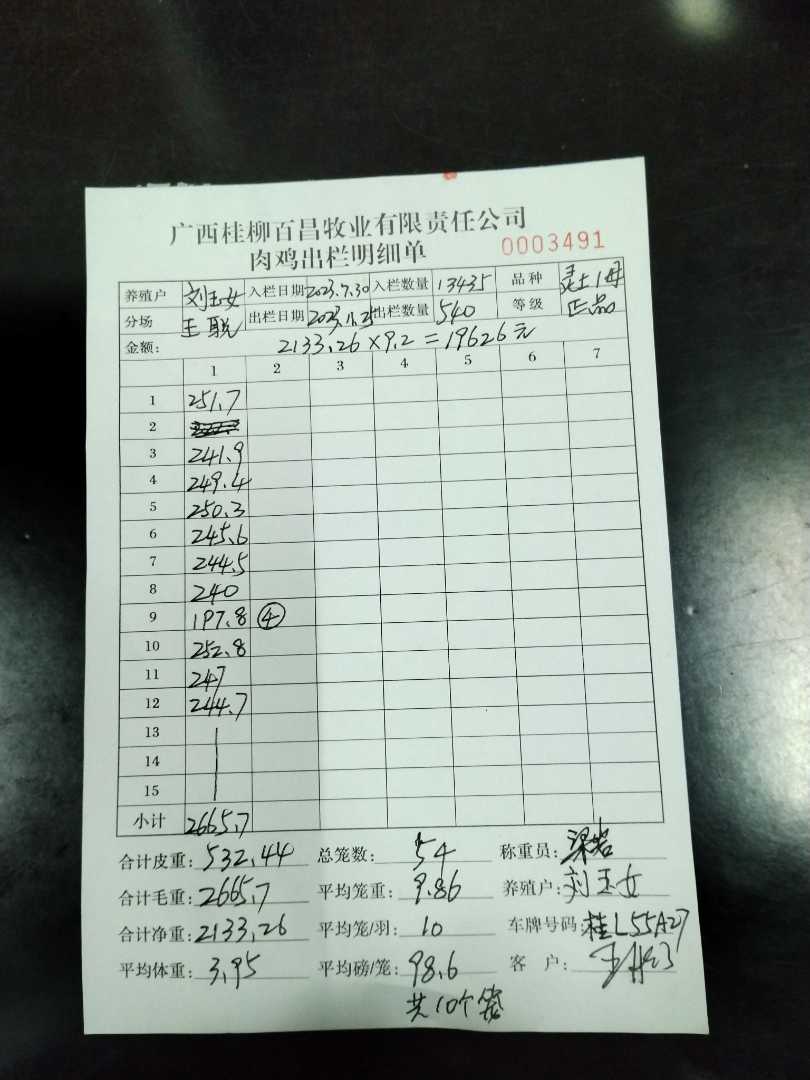 广西桂柳百昌牧业有限责任公司
肉鸡出栏明细单 0003491
养殖户 刘玉女 入栏日期 2023.7.30 入栏数量 13435 品种 灵土1母
分场 王聪 出栏日期 2023.11.25 出栏数量 540 等级 正品
金额: 2133.26×9.2=19626元
1 2 3 4 5 6 7
1 251.7
2
3 241.9
4 249.4
5 250.3
6 245.6
7 244.5
8 240
9 197.8 ④
10 252.8
11 247
12 244.7
13
14
15
小计 2665.7
合计皮重: 532.44 总笼数: 54 称重员:
合计毛重: 2665.7 平均笼重: 9.86 养殖户: 刘玉女
合计净重: 2133.26 平均笼/羽: 10 车牌号码: 桂L55A27
平均体重: 3.95 平均磅/笼: 98.6 客户:
共10个